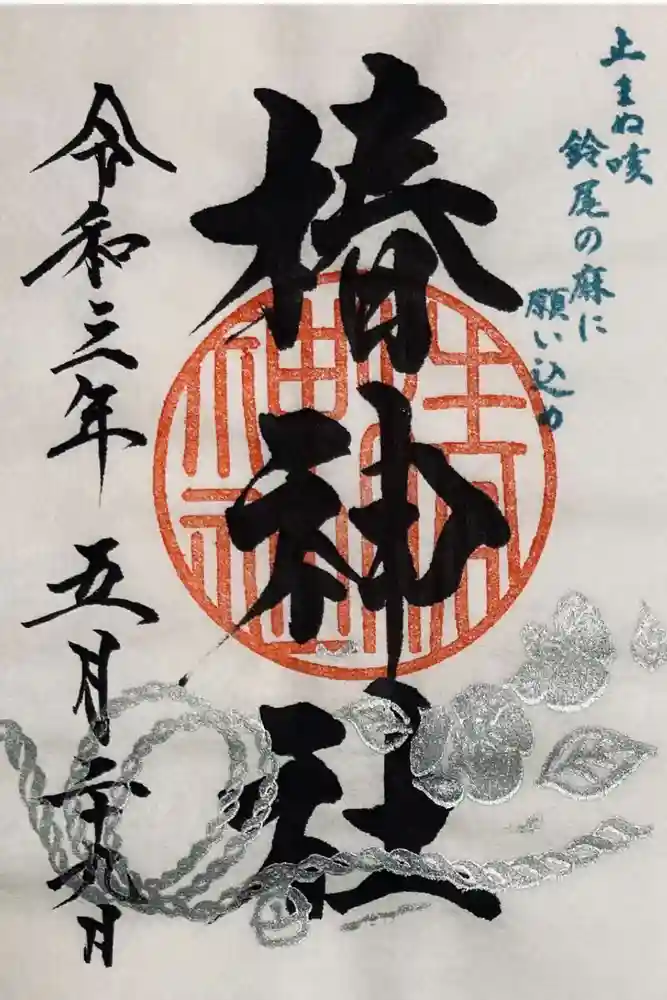 止まぬ咳
鈴尾の麻に
願い込め
椿神社
令和三年 五月二十九日